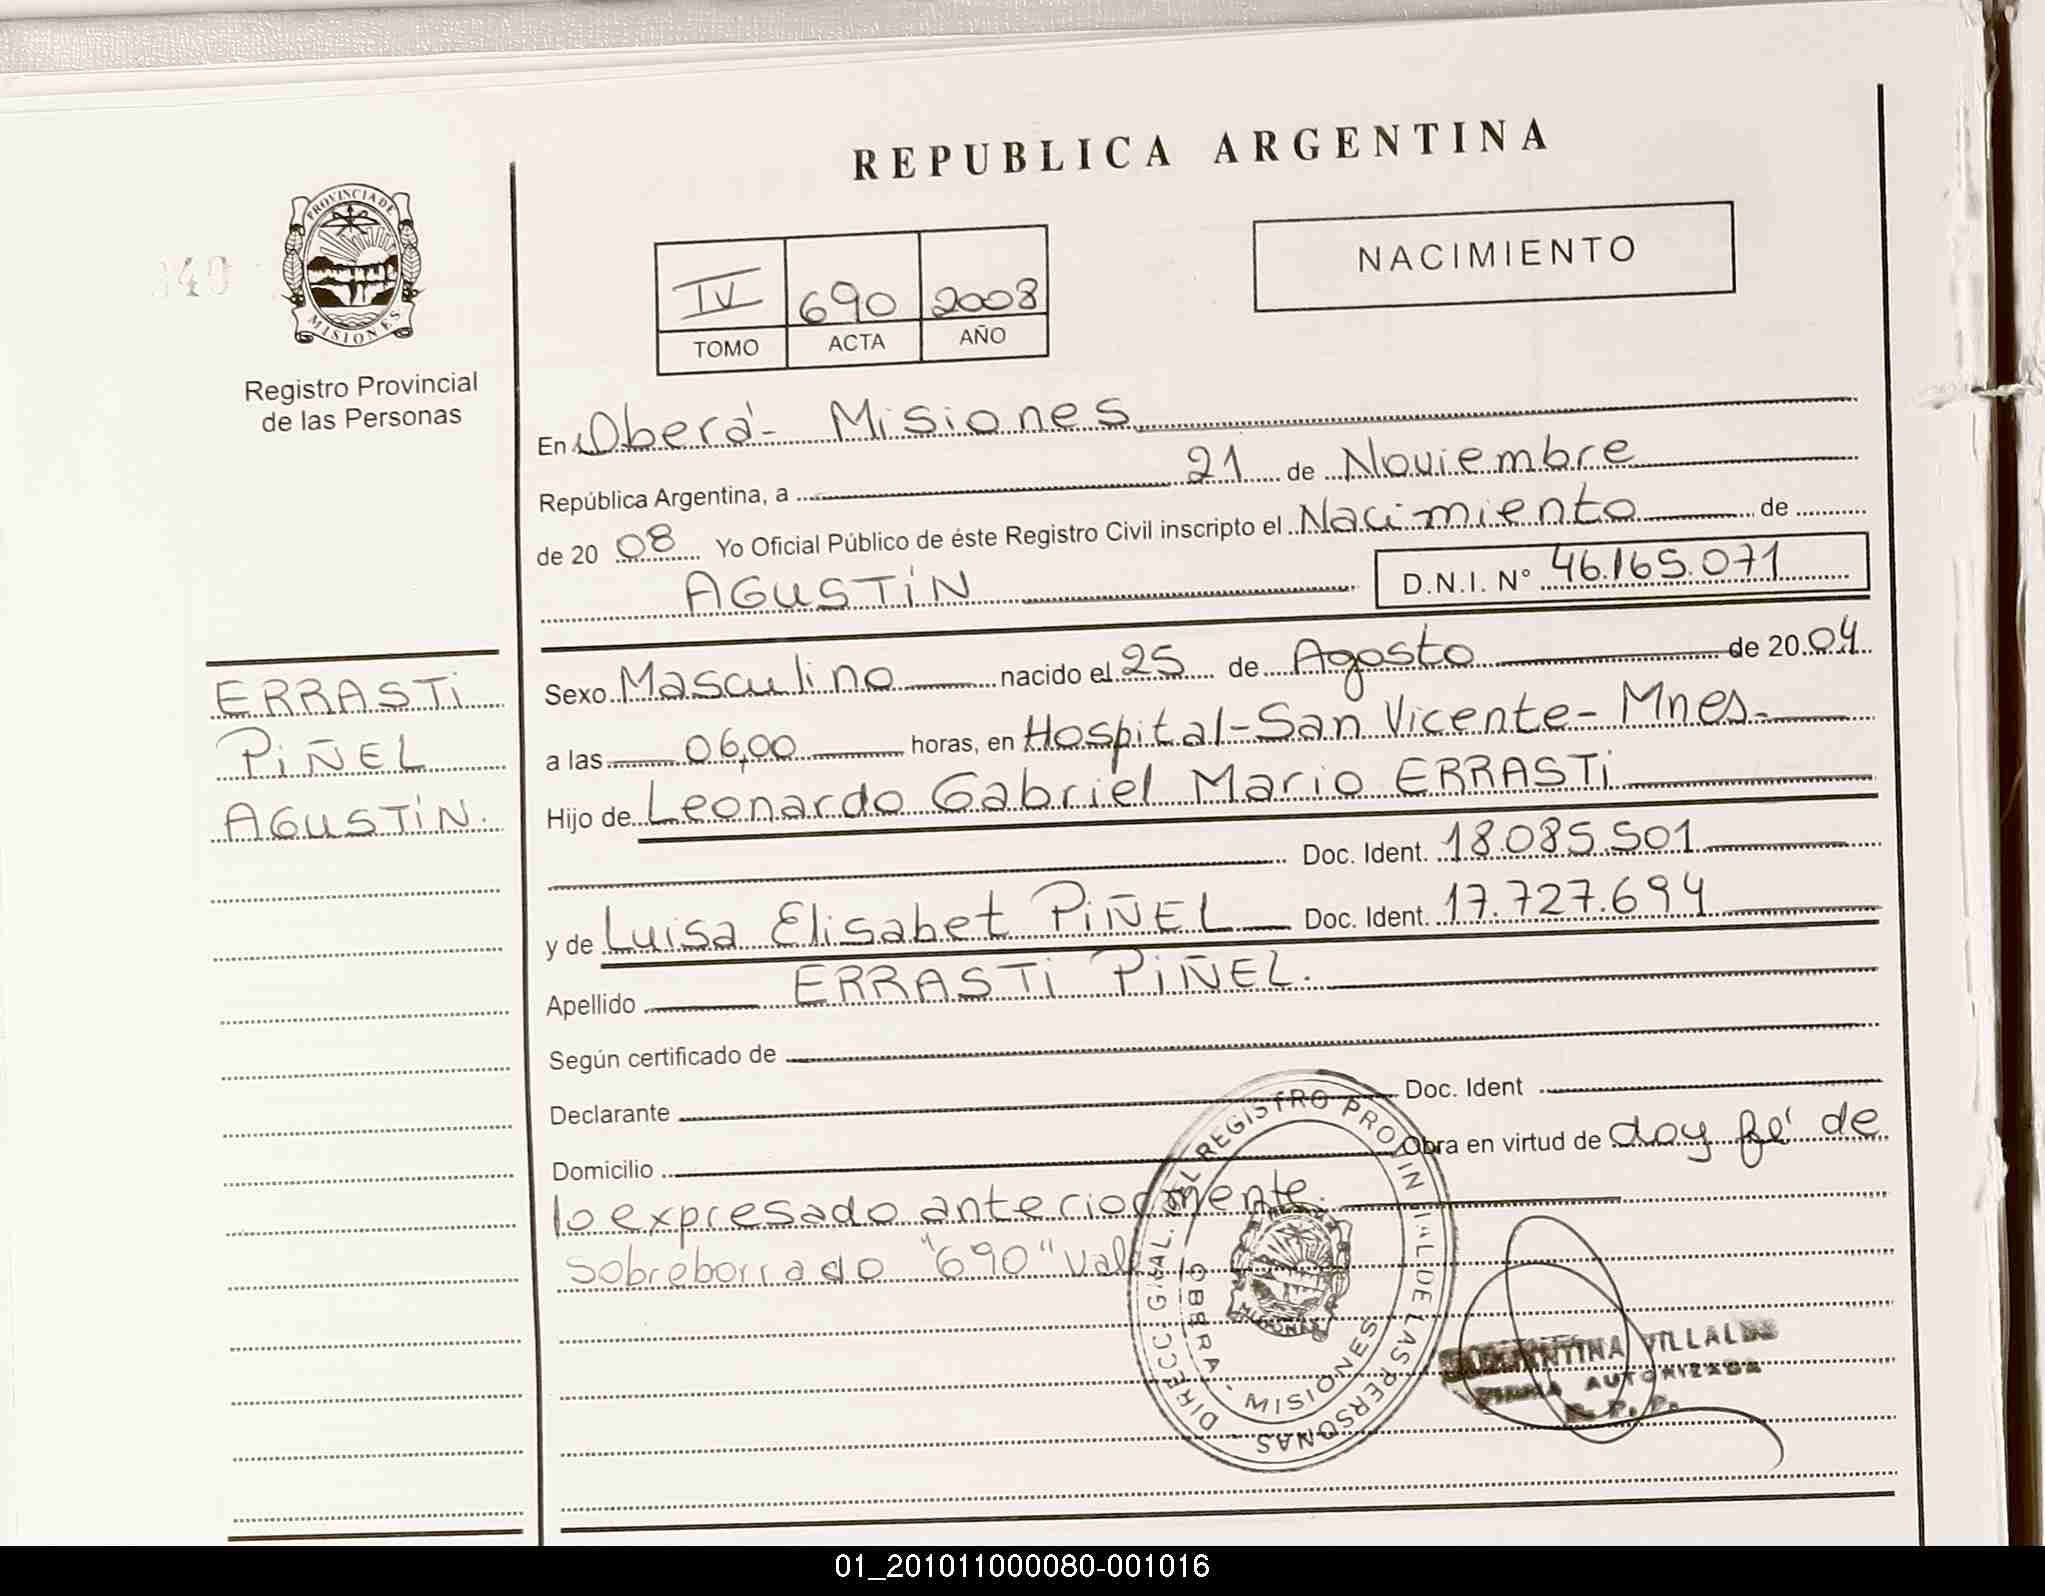 REPUBLICA ARGENTINA
PROVINCIA DE
MISIONES
Registro Provincial
de las Personas
IV 690 2008
TOMO ACTA AÑO
NACIMIENTO
En Oberá - Misiones
República Argentina, a 21 de Noviembre
de 20 08 Yo Oficial Público de éste Registro Civil inscripto el Nacimiento de
AGUSTÍN D.N.I. N° 46.165.071
ERRASTI
PIÑEL
AGUSTÍN.
Sexo Masculino nacido el 25 de Agosto de 20 04
a las 06,00 horas, en Hospital-San Vicente- Mnes.
Hijo de Leonardo Gabriel Mario ERRASTI
Doc. Ident. 18.085.501
y de Luisa Elisabet PIÑEL Doc. Ident. 17.727.694
Apellido ERRASTI PIÑEL.
Según certificado de
Declarante Doc. Ident
Domicilio Obra en virtud de doy fé de
lo expresado anteriormente.
Sobreborrado "690" Vale
DIRECC. GRAL. DEL REGISTRO PROVINCIAL DE LAS PERSONAS
OBERA - MISIONES
MISIONES
VILLALBA
FIRMA AUTORIZADA
R. P. P.
01_201011000080-001016